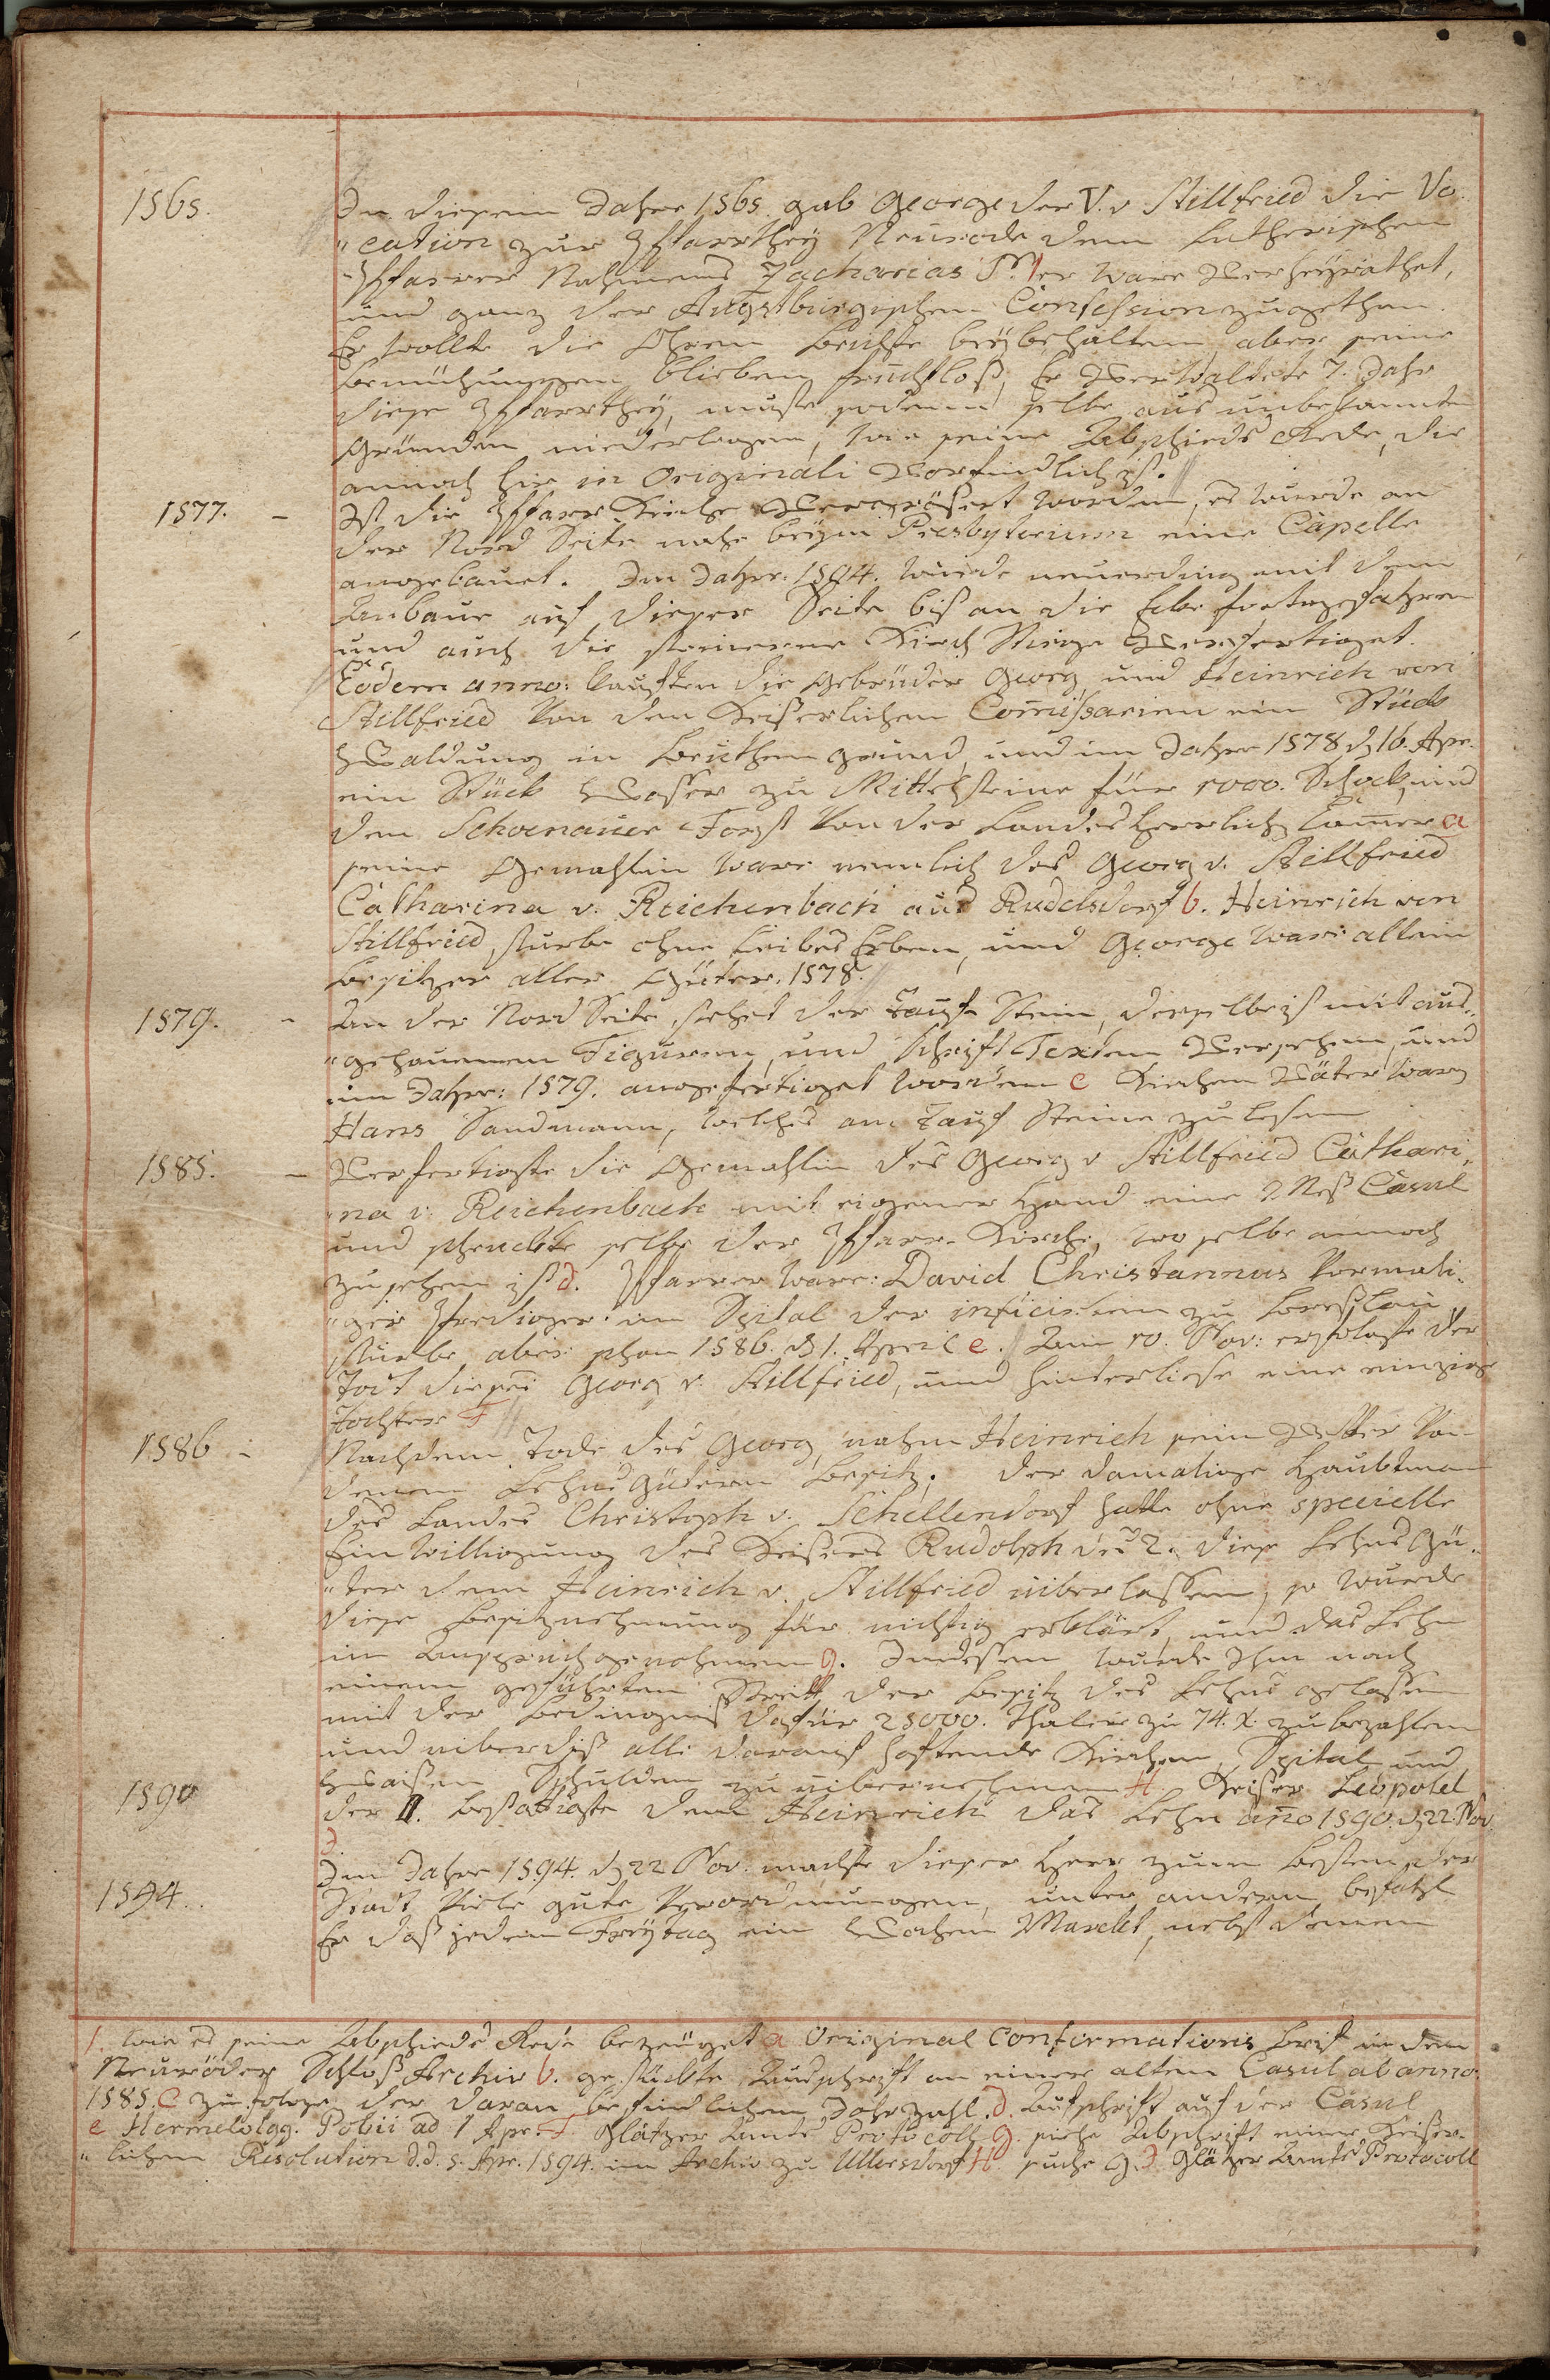 1565.
In diesem Jahre 1565. gab George der V. v Stillfried die Vo„
„cation zur Pfarrthey Neurode dem Lutherischen
Pfarrer Nahmens Zacharias er ware Verheyrathet,
und ganz der Augstburgischen Confession zugethan.
Er wollte die Ohren Beichte beybehalten aber seine
Bemühungen blieben fruchtloß, Er Verwaltete 7. Jahr
diese Pfarrthey, muste sodann selbe aus unbekannten
Gründen niederlegen, wie seine Abschieds Rede, die
annoch hir in Originali Vorfindlich ist.
1577. –
Ist die Pfarr Kirche Vergrößert worden, es wurde an
der Nord Seite nahe beym Presbyterium eine Capelle
angebauet. Im Jahre 1594. wurde neuerding mit dem
Anbaue auf dieser Seite biß an die Ecke fortgefahren
und auch die steinerne Kirch Stiege Verfertiget.
Eodem anno: kauften die Gebrüder Georg und Heinrich von
Stillfried Von den Keiserlichen Comissarien ein Stück
Waldung in Buchen grund, und im Jahre 1578 d 16. Apr.
ein Stück Wasser zu Mittelsteine für 1000. Schock, und
den Schoenauer Forst Von der Landesherrlich Camer a
seine Gemahlin ware nemlich des Georg v. Stillfried
Catharina v. Reichenbach aus Rudelsdorf b. Heinrich von
Stillfried sturbe ohne Leibes Erben, und George ware allein
Besitzer aller Güter. 1578.
1579. –
An der Nord Seite stehet der Tauf Stein, derselbe ist mit aus„
„gehauenen Figuren, und Schrift Texten Versehen, und
im Jahre: 1579. angefertiget worden c Kirchen Väter war
Hans Sandmann, welches am Tauf Steine zu lesen
1585. –
Verfertigte die Gemahlin des Georg v Stillfried Cathari„
„na v. Reichenbach mit eigener Hand eine Meß Casul
und schenckte selbe der Pfarr-Kirche, wo selbe annoch
zusehen ist d. Pfarrer ware: David Christannus Vormali„
„ger Prediger im Spital der inficirten zu Breßlau
sturbe aber schon 1586. d 1. April e. Am 10. Nov: erfolgte der
Tod dieses Georg v. Stillfried, und hinterliese eine einzige
Tochter F
1586 –
Nachdem Tode des Georg, nahm Heinrich sein Vetter Von
denen Lehns Gütern Besitz. Der damalige Haubtman
des Landes Christoph v. Schellendorf hatte ohne specielle
Einwilligung des Keisers Rudolph des 2. diese Lehns Gü„
„ter dem Heinrich v. Stillfried überlassen, so wurde
diese Besitznehmung für nichtig erklärt und das Lehn
in Anspruch genohmen g. Indessen wurde Ihm nach
einem geführten Streitt der Besitz des Lehns gelassen
mit der Bedingniß dafür 25000. Thaler zu 74. X. zu bezahlen
und überdiß alle darauf haftende Kirchen, Spital und
Waisen Schulden zu übernehmen H. Keiser Leopold
1590
der II. bestättigte dem Heinrich das Lehn año 1590. d 22. Nov.
J
1594.
Im Jahre 1594. d 22 Nov. machte dieser Herr zum Besten der
Stadt Viele gute Verordnungen, unter andern befahl
Er daß jeden Freytag ein Wochen Marckt, nebst denen
1. wie es seine Abschieds Rede bezeuget a Original Confirmations Brif in dem
Neuröder Schloß Archiv b. gestückte Aufschrift an einer alten Casul ab anno
1585. c zu folge der daran befindlichen Jahrzahl. d. Aufschrift auf der Casul
e Hermelolog. Pobii ad 1 Apr. F Glätzer Amts Protocoll g. siehe Abschrift einer Keiser„
„lichen Resolution d.d. 5. Apr. 1594. im Archiv zu Ullersdorf H. siehe g. J. Glätzer Amts Protocoll